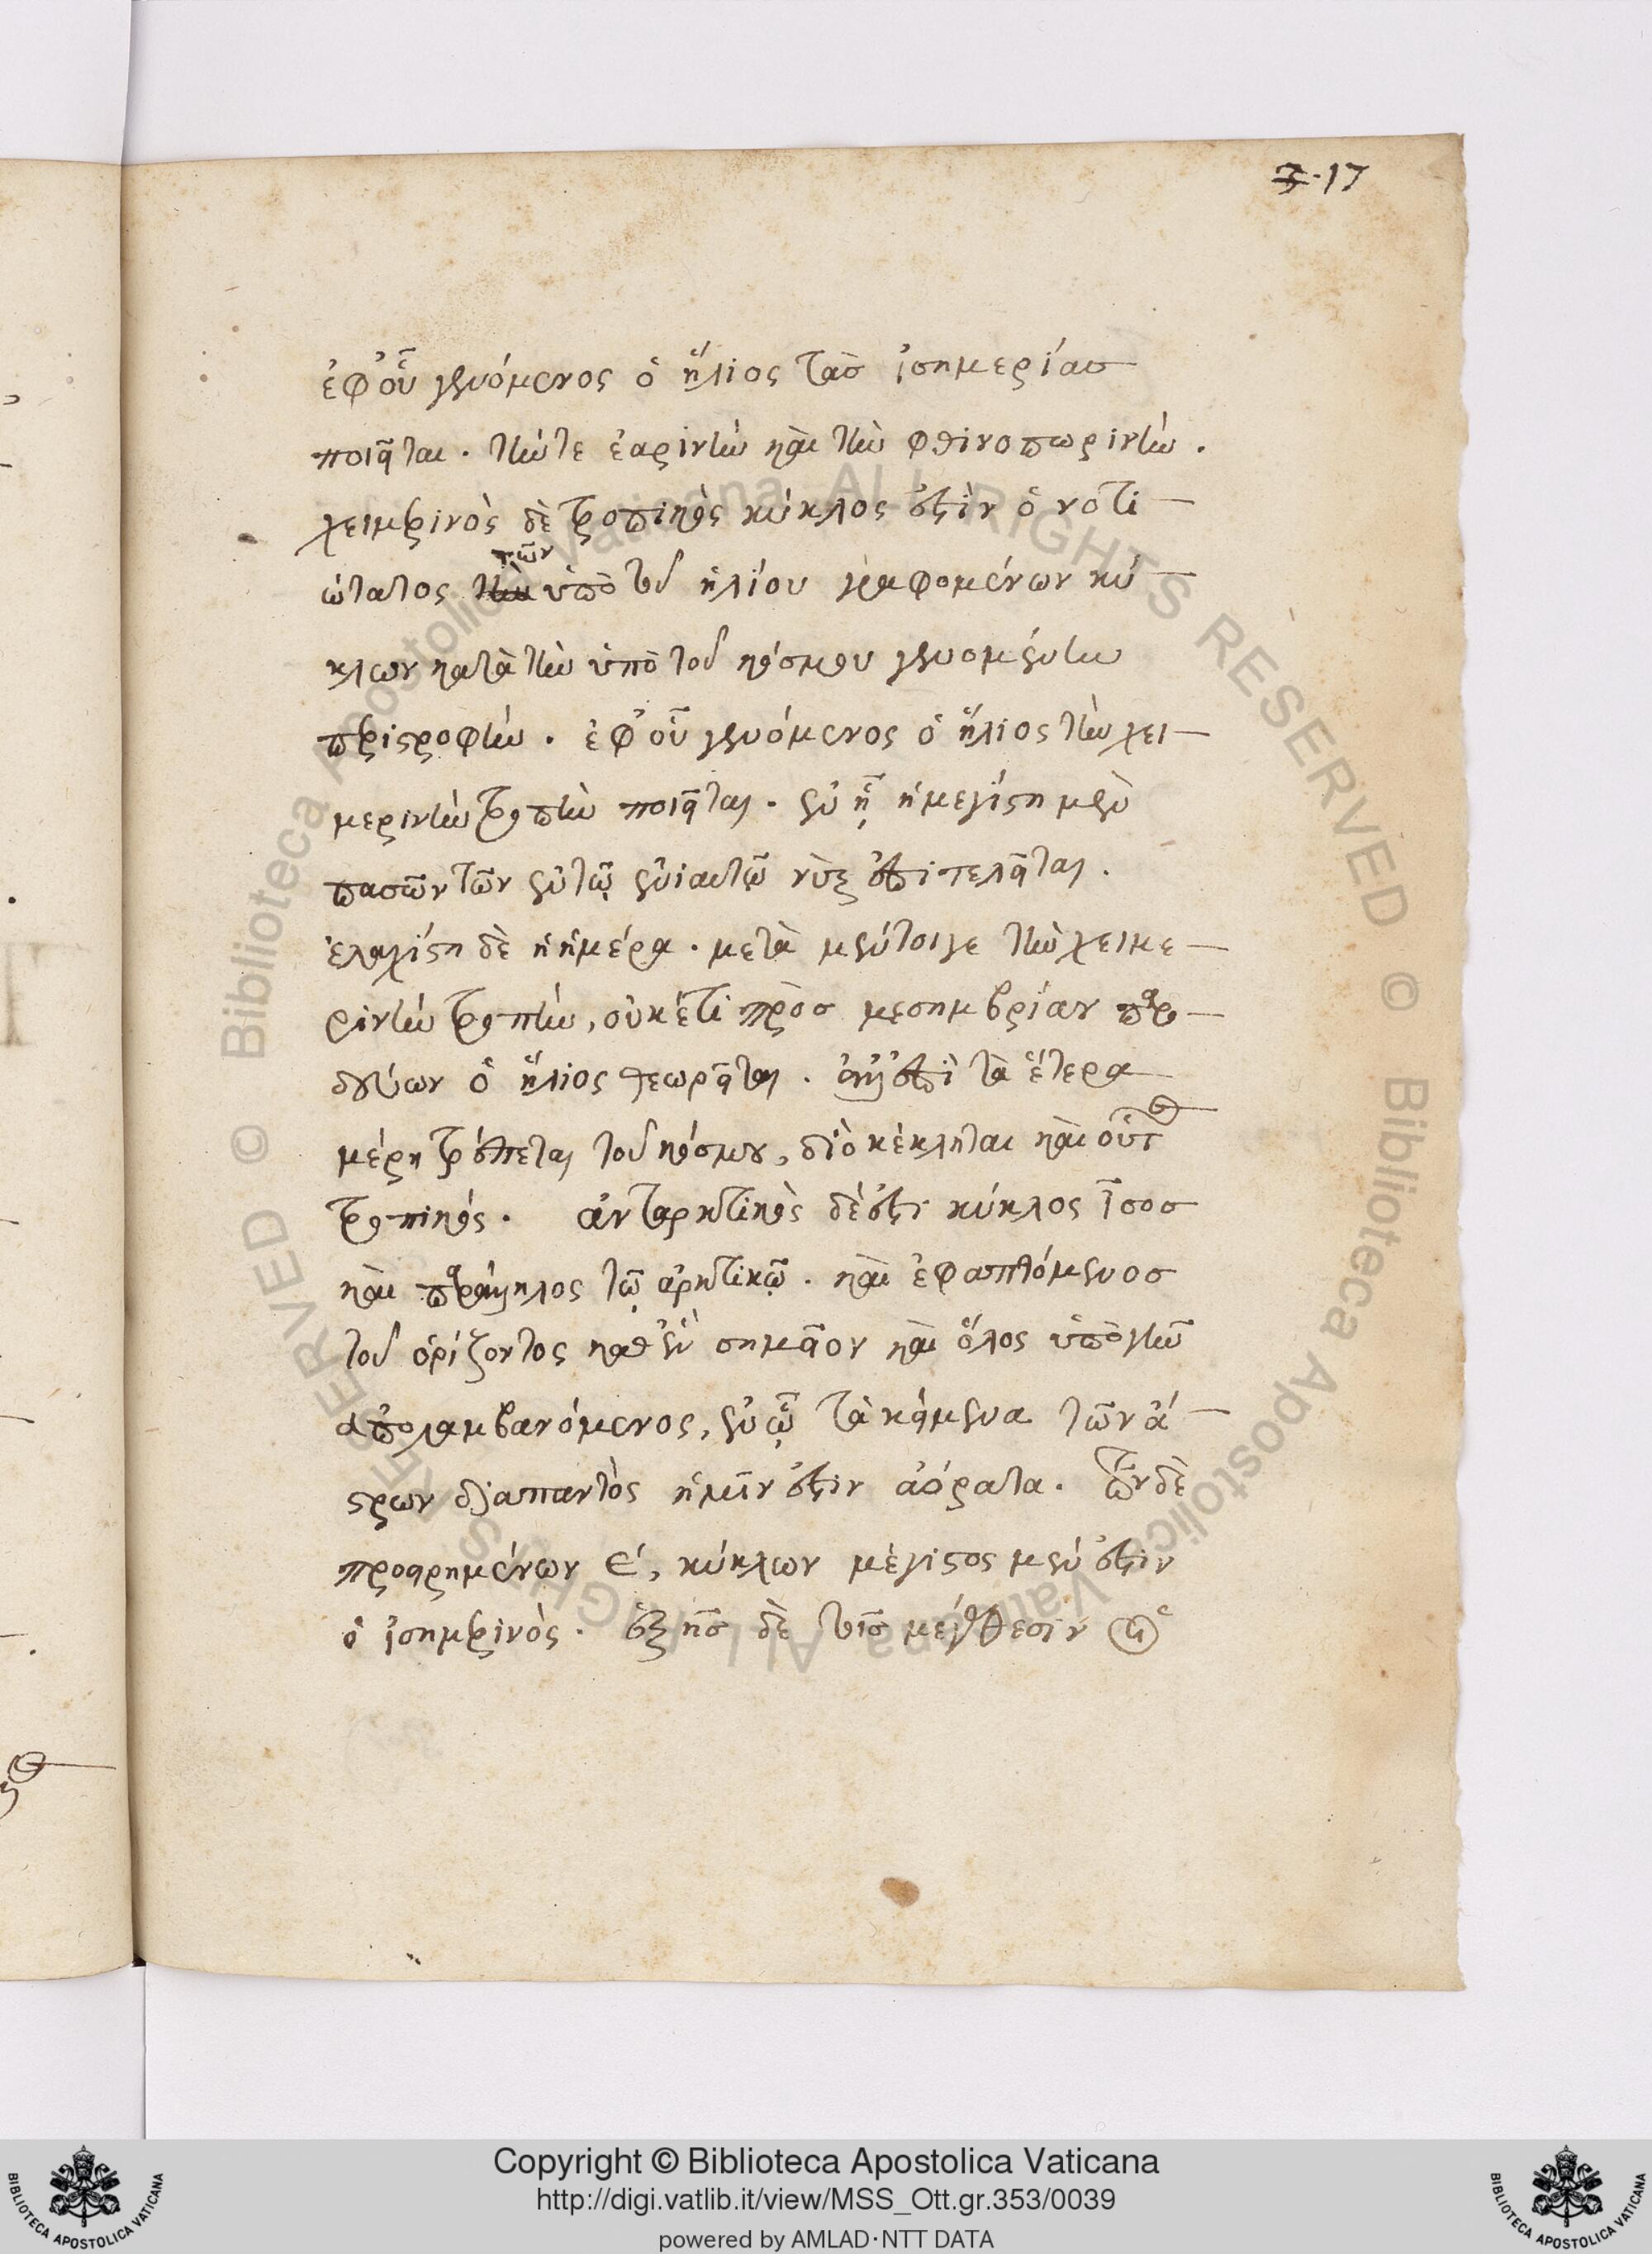 17
ἐφ' οὗ γενόμενος ὁ ἥλιος τὰσ ἰσημερίασ
ποιεῖται. τήν τε ἐαρινὴν καὶ τὴν φθινοπωρινήν.
χειμερινὸς δὲ τροπικὸς κύκλος ἐστὶν ὁ νοτι-
ώτατος τῶν ὑπὸ τοῦ ἡλίου γραφομένων κύ-
κλων κατὰ τὴν ὑπὸ τοῦ κόσμου γενομένην
περιστροφήν. ἐφ' οὗ γενόμενος ὁ ἥλιος τὴν χει-
μερινὴν τροπὴν ποιεῖται. ἐν ᾗ ἡ μεγίστη μὲν
πασῶν τῶν ἐν τῷ ἐνιαυτῷ νὺξ ἐπιτελεῖται.
ἐλαχίστη δὲ ἡ ἡμέρα. μετὰ μέντοιγε τὴν χειμε-
ρινὴν τροπήν, οὐκέτι πρὸσ μεσημβρίαν παρο-
δεύων ὁ ἥλιος θεωρεῖται. ἀλλ' ἐπὶ τὰ ἕτερα
μέρη τρέπεται τοῦ κόσμου, διὸ κέκληται καὶ οὗτος
τροπικός. ἀνταρκτικὸς δέ ἐστι κύκλος ἴσοσ
καὶ παράλληλος τῷ ἀρκτικῷ. καὶ ἐφαπτόμενοσ
τοῦ ὁρίζοντος καθ' ἓν σημεῖον καὶ ὅλος ὑπὸ γῆν
ἀπολαμβανόμενος, ἐν ᾧ τὰ κείμενα τῶν ἄ-
στρων διαπαντὸς ἡμῖν ἐστιν ἀόρατα. τῶν δὲ
προειρημένων ε´, κύκλων μέγιστος μέν ἐστιν
ὁ ἰσημερινὸς. ἑξῆσ δὲ τοῖσ μεγέθεσιν οἱ
Copyright © Biblioteca Apostolica Vaticana
http://digi.vatlib.it/view/MSS_Ott.gr.353/0039
powered by AMLAD·NTT DATA
BIBLIOTECA APOSTOLICA VATICANA
BIBLIOTECA APOSTOLICA VATICANA